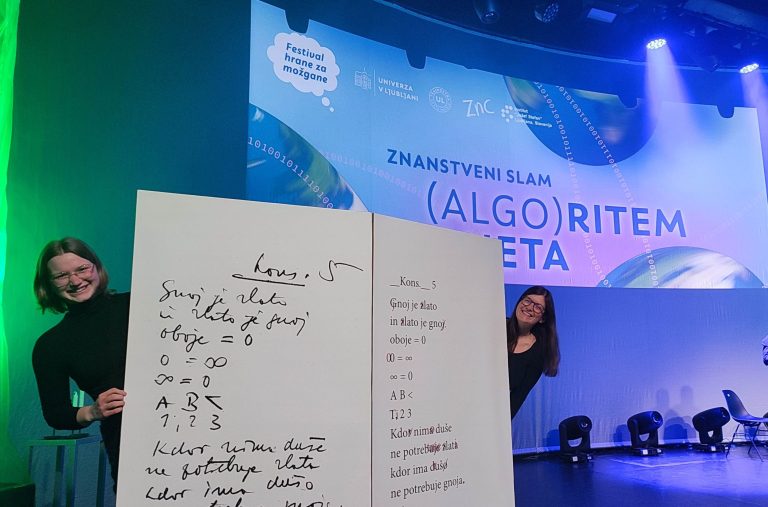 Festival
hrane za
možgane
UNIVERZA
V LJUBLJANI
UL
ZnC
Institut
"Jožef Stefan"
Ljubljana, Slovenija
ZNANSTVENI SLAM
(ALGO)RITEM
ETA
Kons. 5
Gnoj je zlato
in zlato je gnoj
oboje = 0
0 = ∞
∞ = 0
A B <
1, 2 3
Kdor nima duše
ne potrebuje zlata
kdor ima dušo
__Kons.__ 5
Gnoj je zlato
in zlato je gnoj.
oboje = 0
00 = ∞
∞ = 0
A B <
T¡ 2 3
Kdor nima duše
ne potrebuje zlata
kdor ima dušo
ne potrebuje gnoja.